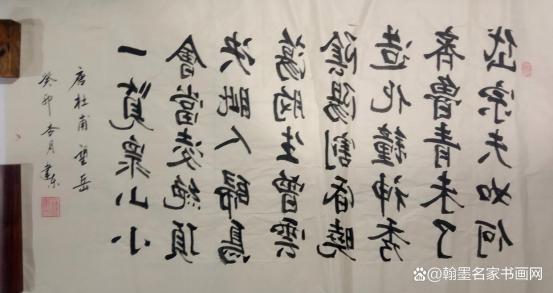 岱宗夫如何
齐魯青未了
造化鐘神秀
陰陽割昏曉
蕩胸生曾雲
決眦入歸鳥
會當凌絕頂
一覽衆山小
唐杜甫望岳
癸卯杏月建东
翰墨名家书画网